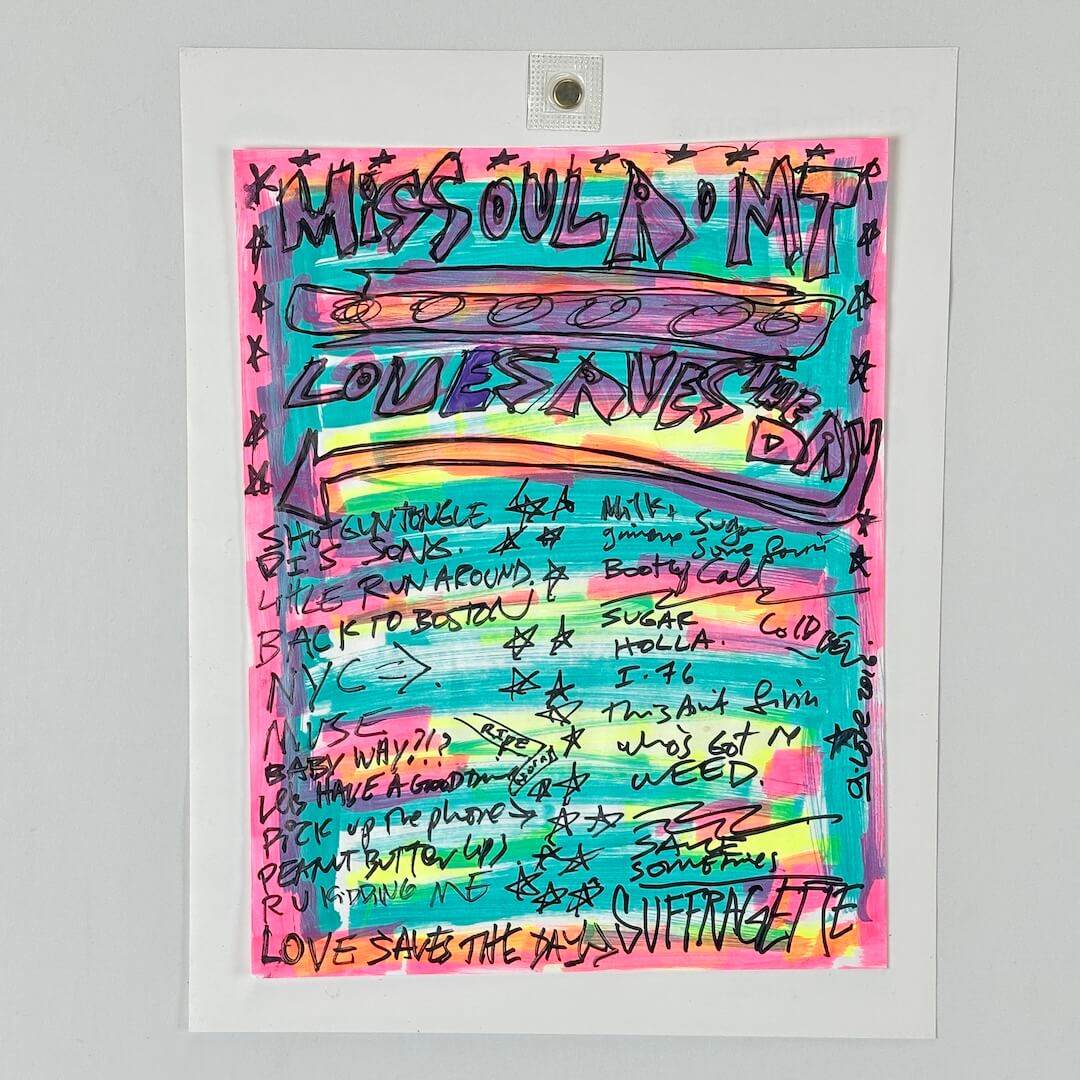 MISSOULA MT
LOVE SAVES THE
DAY
SHOTGUN JONGLE
DIS SONG.
LITTLE RUN AROUND.
BACK TO BOSTON
NYC =>.
NURSE
BABY WHY?!?
Let's HAVE A GOOD Time
Pick up the phone →
PEANUT BUTTER LIPS
R U KIDDING ME
LOVE SAVES THE DAY
RIDE
Milk +
gimme Sugar
Some
Booty Call
SUGAR
HOLLA.
COLD
I.76
this Aint livin
who's GOT
WEED.
SAME
Sometimes
SUFFRAGETTE
G. Love 2016.